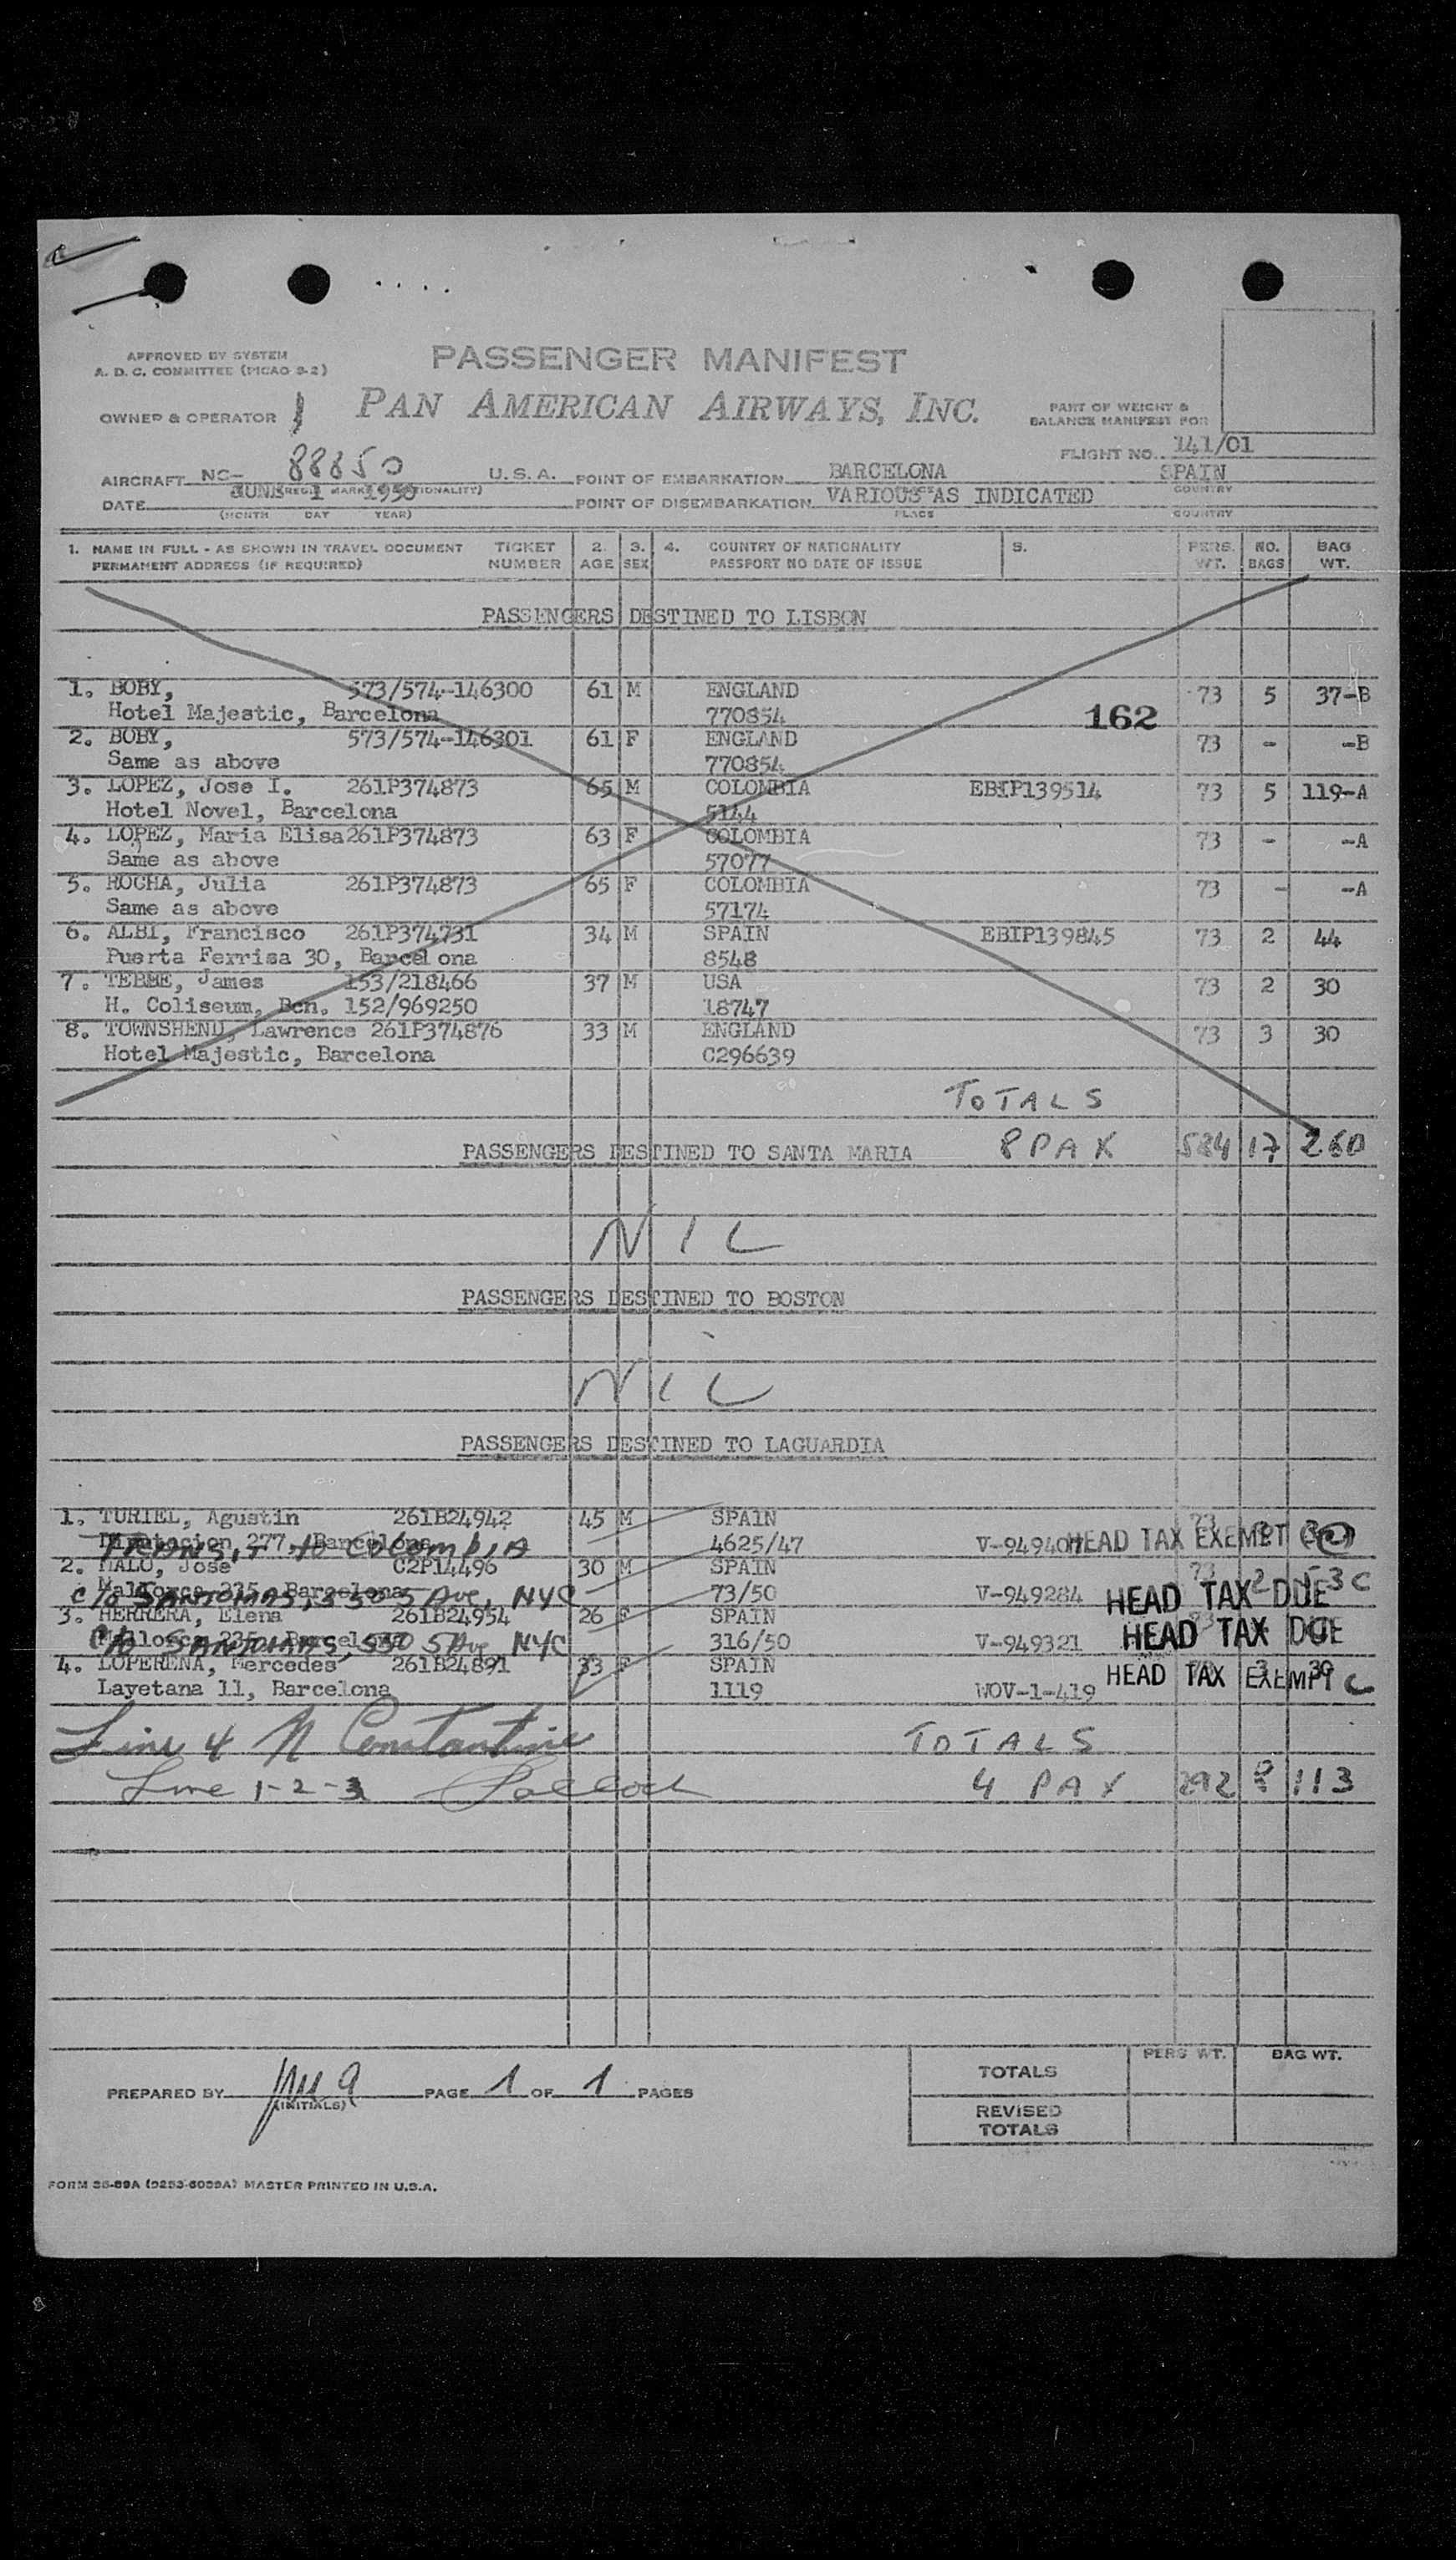 APPROVED BY SYSTEM
A. D. C. COMMITTEE (PICAO 9-2)
PASSENGER MANIFEST
OWNER & OPERATOR
PAN AMERICAN AIRWAYS, INC.
PART OF WEIGHT &
BALANCE MANIFEST FOR
FLIGHT NO. 141/01
AIRCRAFT NC- 88850 U.S.A. POINT OF EMBARKATION BARCELONA SPAIN
COUNTRY
DATE JUNE 1 1950 POINT OF DISEMBARKATION VARIOUS AS INDICATED
(MONTH DAY YEAR) PLACE COUNTRY
1. NAME IN FULL - AS SHOWN IN TRAVEL DOCUMENT TICKET 2. 3. 4. COUNTRY OF NATIONALITY 5. PERS. NO. BAG
PERMANENT ADDRESS (IF REQUIRED) NUMBER AGE SEX PASSPORT NO DATE OF ISSUE WT. BAGS WT.
PASSENGERS DESTINED TO LISBON
1. BOBY, 573/574-146300 61 M ENGLAND 73 5 37-B
Hotel Majestic, Barcelona 770854 162
2. BOBY, 573/574-146301 61 F ENGLAND 73 - -B
Same as above 770854
3. LOPEZ, Jose I. 261P374873 65 M COLOMBIA EBIP139514 73 5 119-A
Hotel Novel, Barcelona 5144
4. LOPEZ, Maria Elisa 261P374873 63 F COLOMBIA 73 - -A
Same as above 57077
5. ROCHA, Julia 261P374873 65 F COLOMBIA 73 - -A
Same as above 57174
6. ALBI, Francisco 261P374731 34 M SPAIN EBIP139845 73 2 44
Puerta Ferrisa 30, Barcelona 8548
7. TERME, James 153/218466 37 M USA 73 2 30
H. Coliseum, Bcn. 152/969250 18747
8. TOWNSHEND, Lawrence 261P374876 33 M ENGLAND 73 3 30
Hotel Majestic, Barcelona C296639
TOTALS
PASSENGERS DESTINED TO SANTA MARIA 8 PAX 584 17 260
NIL
PASSENGERS DESTINED TO BOSTON
NIL
PASSENGERS DESTINED TO LAGUARDIA
1. TURIEL, Agustin 261B24942 45 M SPAIN 73
Diputacion 277, Barcelona 4625/47 HEAD TAX EXEMPT
TRANSIT to COLOMBIA
2. MALO, Jose C2P14496 30 M SPAIN 73
Mallorca 235, Barcelona 73/50 V-949284 HEAD TAX DUE
c/o SANTOMAS, 350 5 Ave, NYC
3. HERRERA, Elena 261B24954 26 F SPAIN HEAD TAX DUE
Mallorca 235, Barcelona 316/50 V-949321
c/o SANTOMAS, 350 5 Ave NYC
4. LOPERENA, Mercedes 261B24891 33 F SPAIN HEAD TAX EXEMPT C
Layetana 11, Barcelona 1119 NOV-1-419
Line 4 N Constantine TOTALS
Line 1-2-3 4 PAX 292 8 113
PREPARED BY PAGE 1 OF 1 PAGES
(INITIALS)
PERS WT. BAG WT.
TOTALS
REVISED
TOTALS
FORM 35-89A (0253-6089A) MASTER PRINTED IN U.S.A.